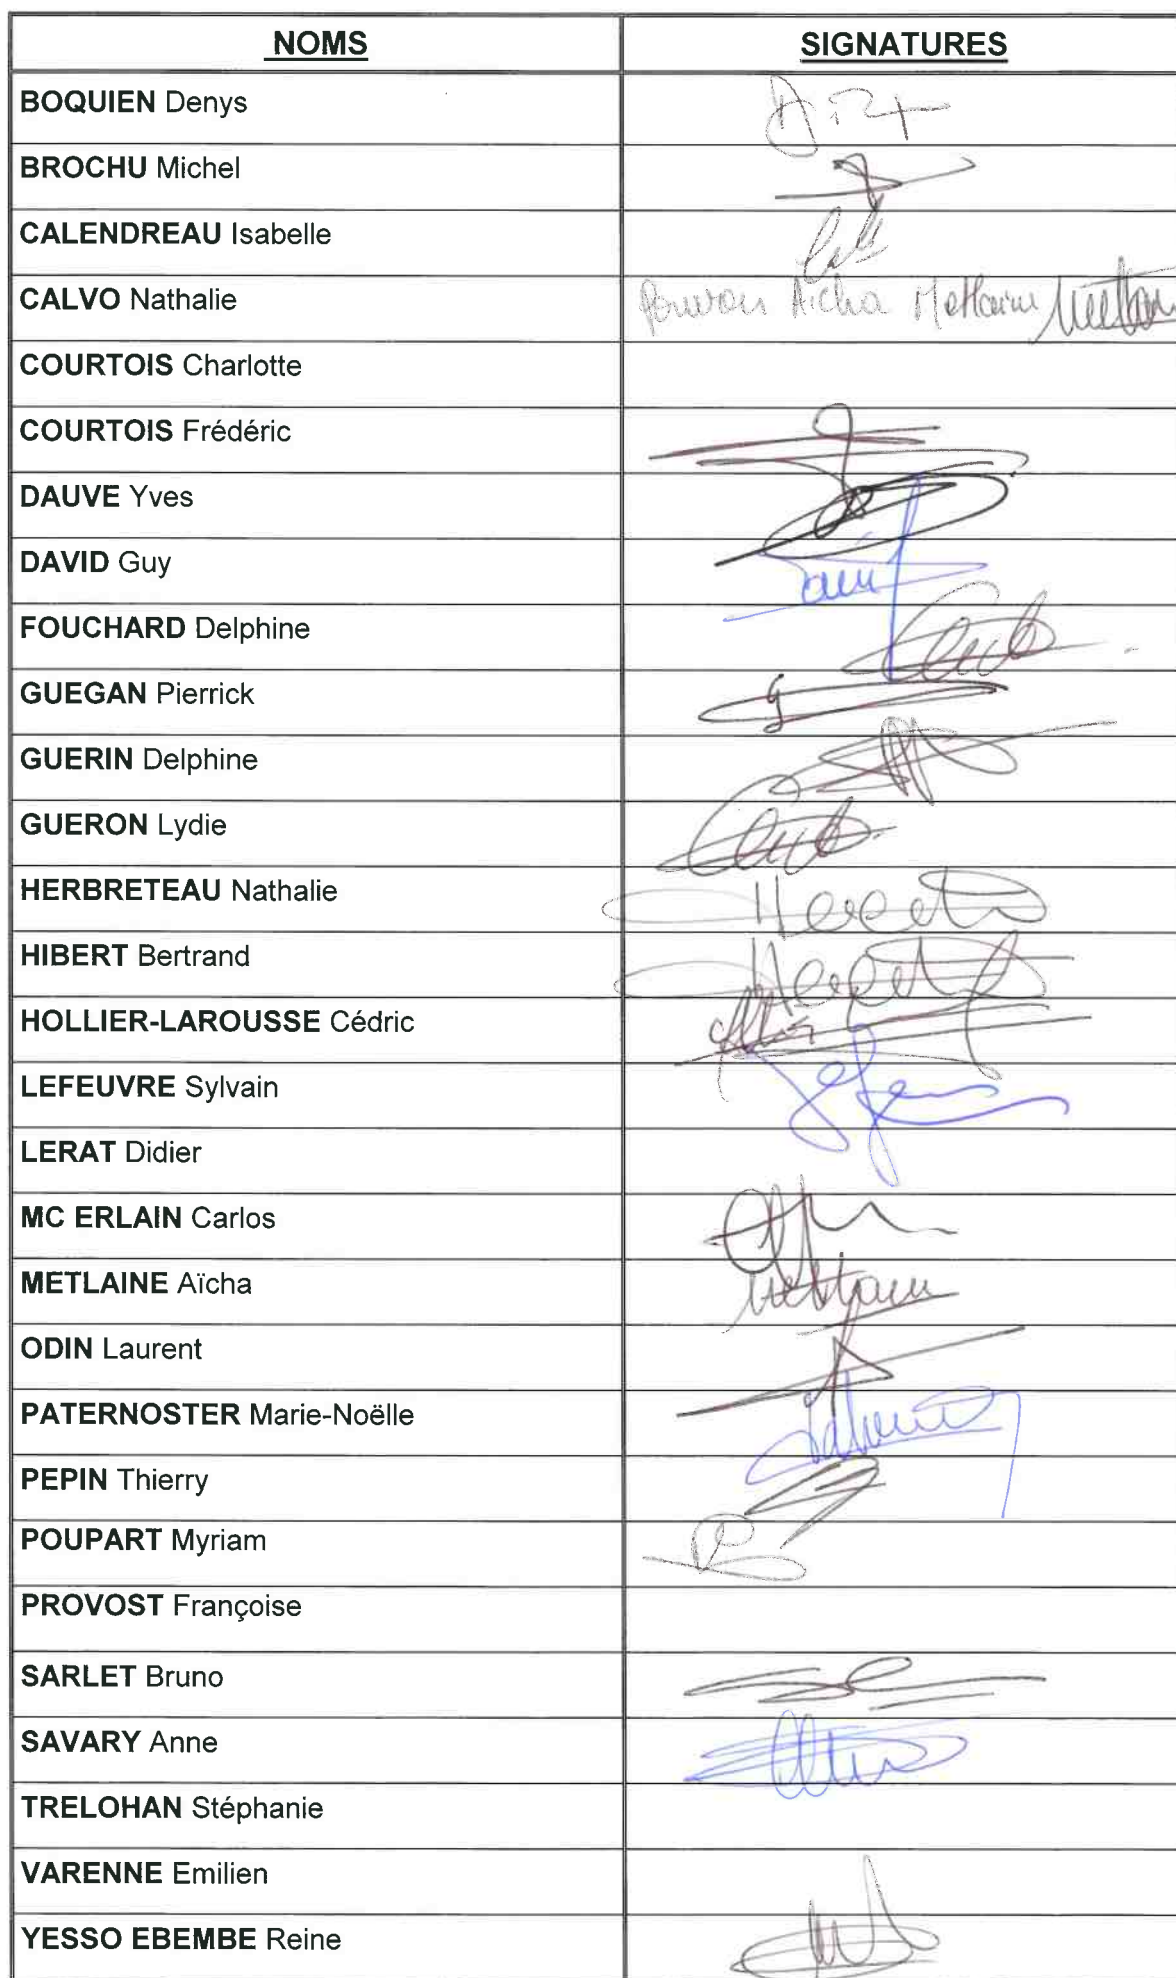 NOMS SIGNATURES
BOQUIEN Denys
BROCHU Michel
CALENDREAU Isabelle
CALVO Nathalie Pouvoir Aïcha Metlaine
COURTOIS Charlotte
COURTOIS Frédéric
DAUVE Yves
DAVID Guy
FOUCHARD Delphine
GUEGAN Pierrick
GUERIN Delphine
GUERON Lydie
HERBRETEAU Nathalie
HIBERT Bertrand
HOLLIER-LAROUSSE Cédric
LEFEUVRE Sylvain
LERAT Didier
MC ERLAIN Carlos
METLAINE Aïcha
ODIN Laurent
PATERNOSTER Marie-Noëlle
PEPIN Thierry
POUPART Myriam
PROVOST Françoise
SARLET Bruno
SAVARY Anne
TRELOHAN Stéphanie
VARENNE Emilien
YESSO EBEMBE Reine